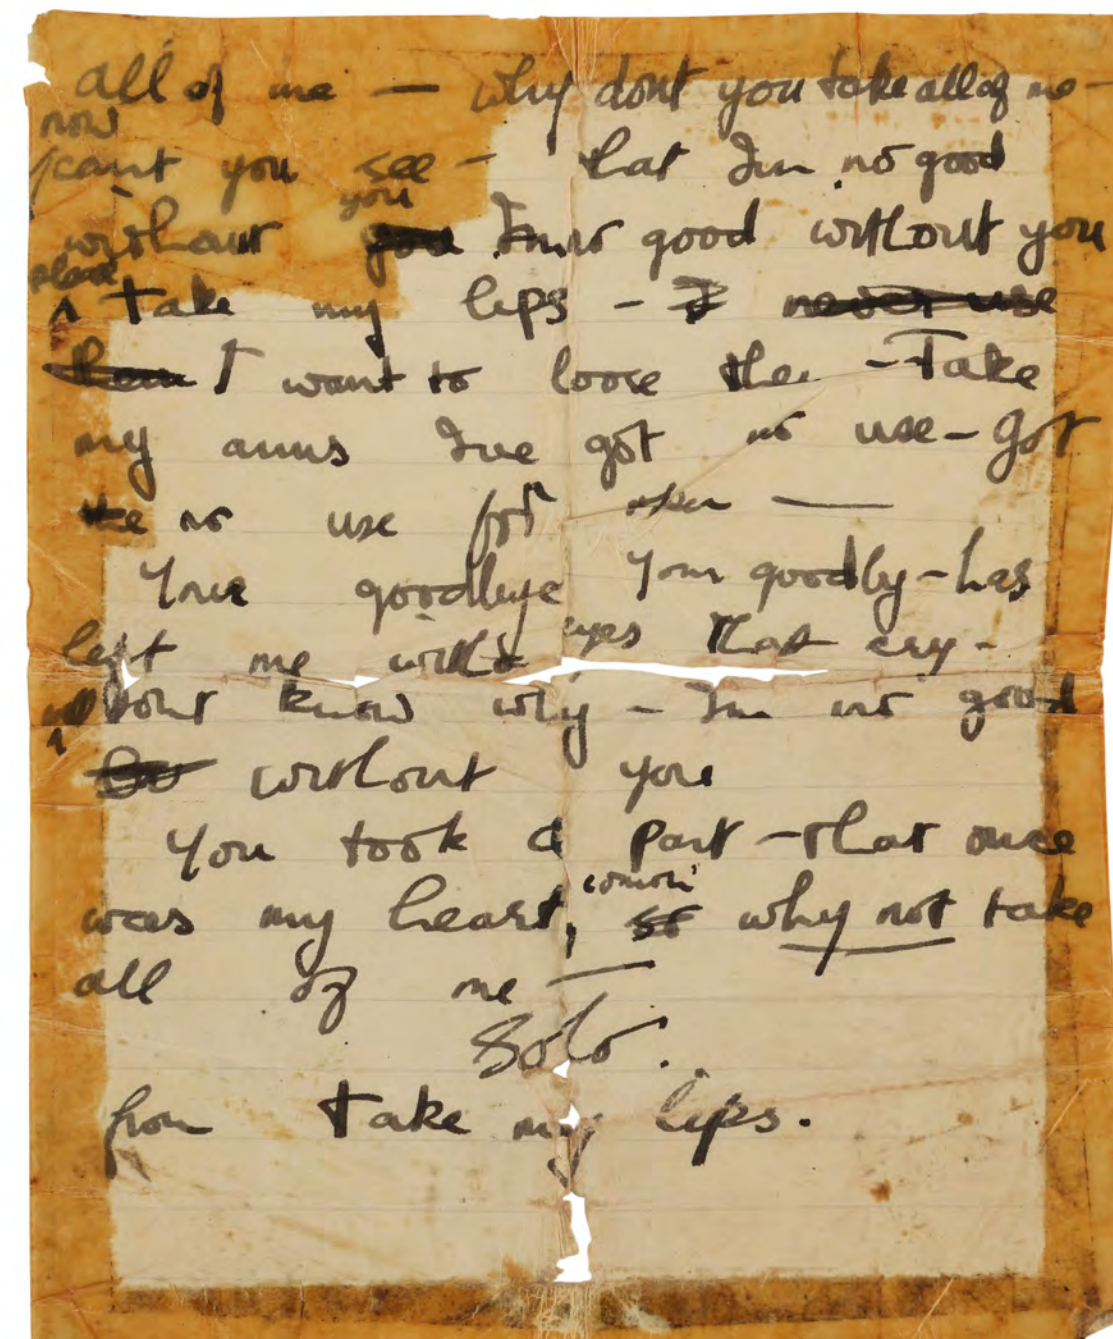 all of me — why dont you take all of me —
now
cant you see — that Im no good
you
without you Im no good without you
please
^ Take my lips - I never use
them I want to loose them - Take
my arms Ive got no use - got
the no use for them ——
Your goodbye Your goodby - has
left me with eyes that cry -
dont know why - Im no good
So without you
You took a part - that once
was my heart, so why not take
comon
all of me —
Solo.
from take my lips.